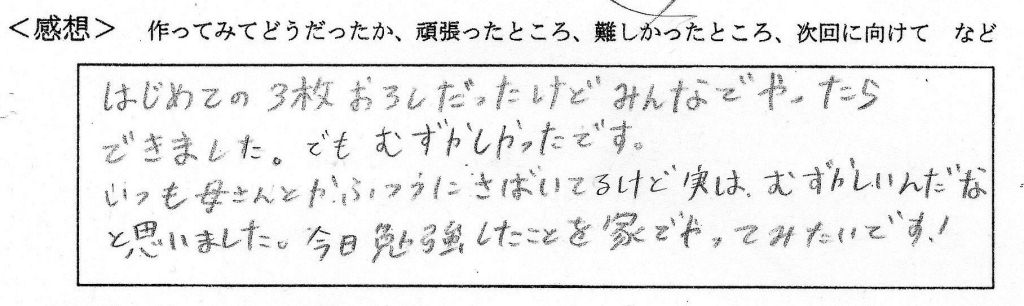 ＜感想＞ 作ってみてどうだったか、頑張ったところ、難しかったところ、次回に向けて など
はじめての3枚おろしだったけどみんなでやったら
できました。でもむずかしかったです。
いつも母さんとかふつうにさばいてるけど実は、むずかしいんだな
と思いました。今日勉強したことを家でやってみたいです!